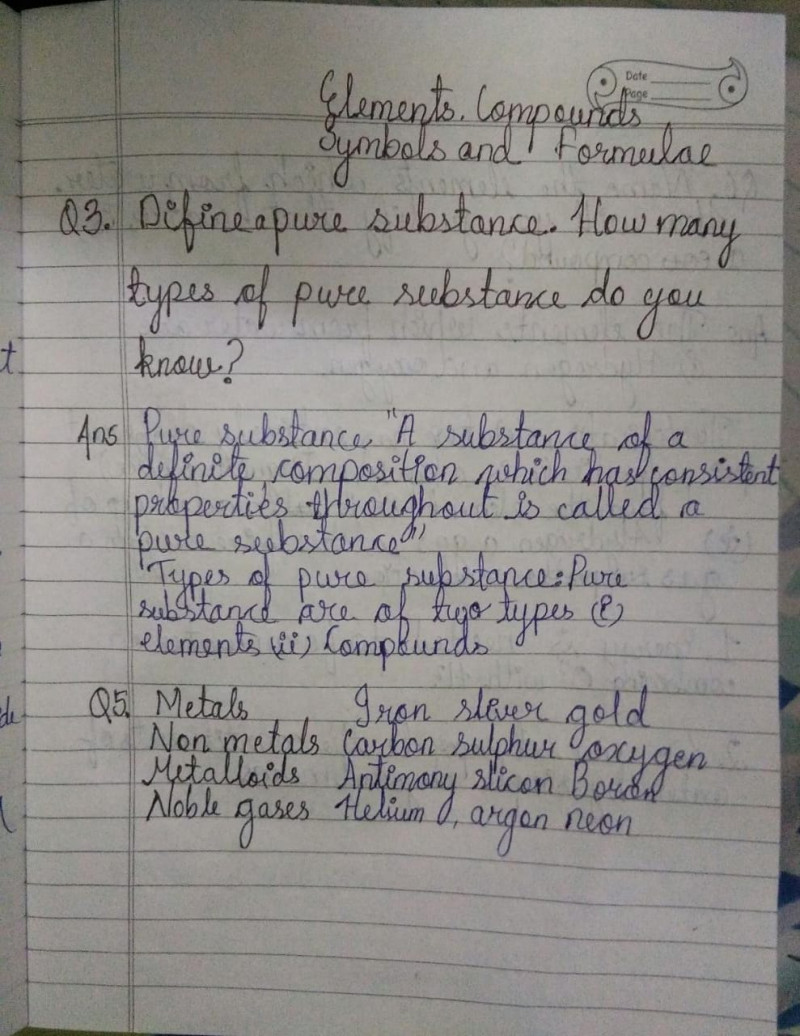 Date
Page
Elements. Compounds
Symbols and Formulae
Q3. Difine a pure substance. How many
types of pure substance do you
know?
t
Ans Pure substance "A substance of a
definite composition which has consistent
properties throughout is called a
pure substance"
Types of pure substance: Pure
substance are of two types (i)
elements (ii) Compounds
Q5. Metals Iron sliver gold
de
Non metals Carbon sulphur oxygen
Metalloids Antimony slicon Boron
Noble gases Helium, argon neon